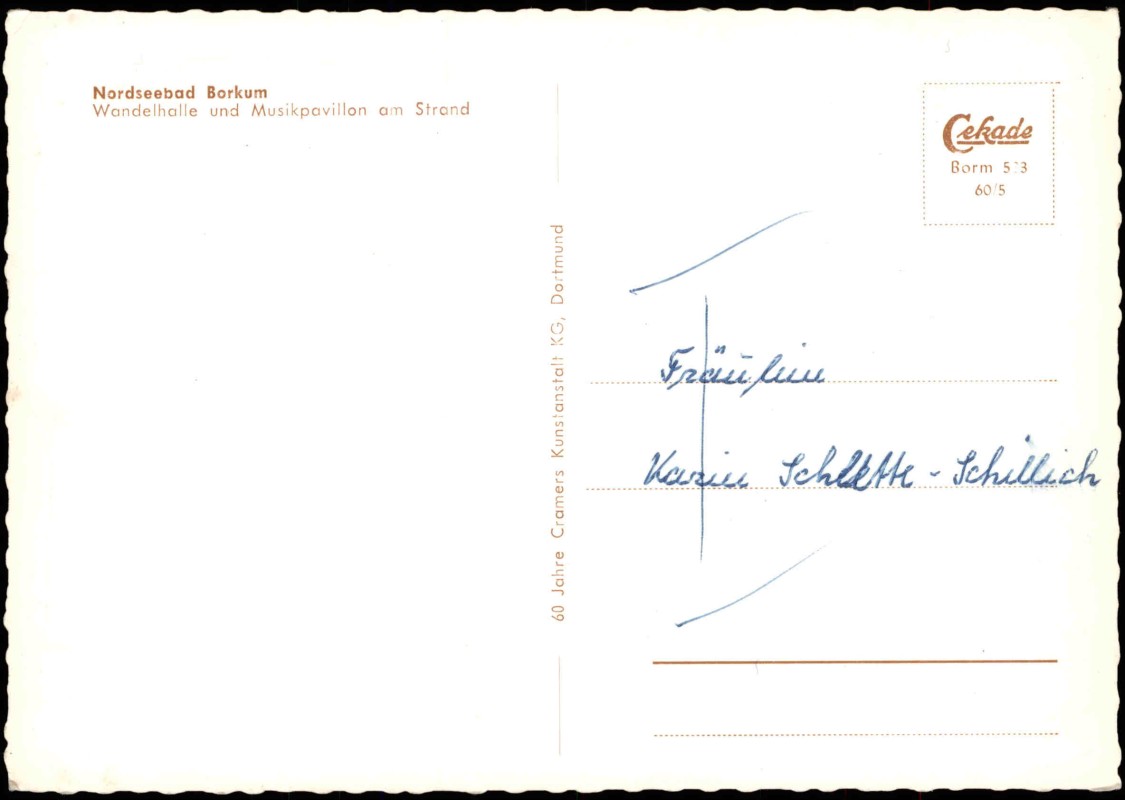 Nordseebad Borkum
Wandelhalle und Musikpavillon am Strand
Cekade
Borm
60/5
60 Jahre Cramers Kunstanstalt KG, Dortmund
Fräulein
Karin Schlette - Schillich